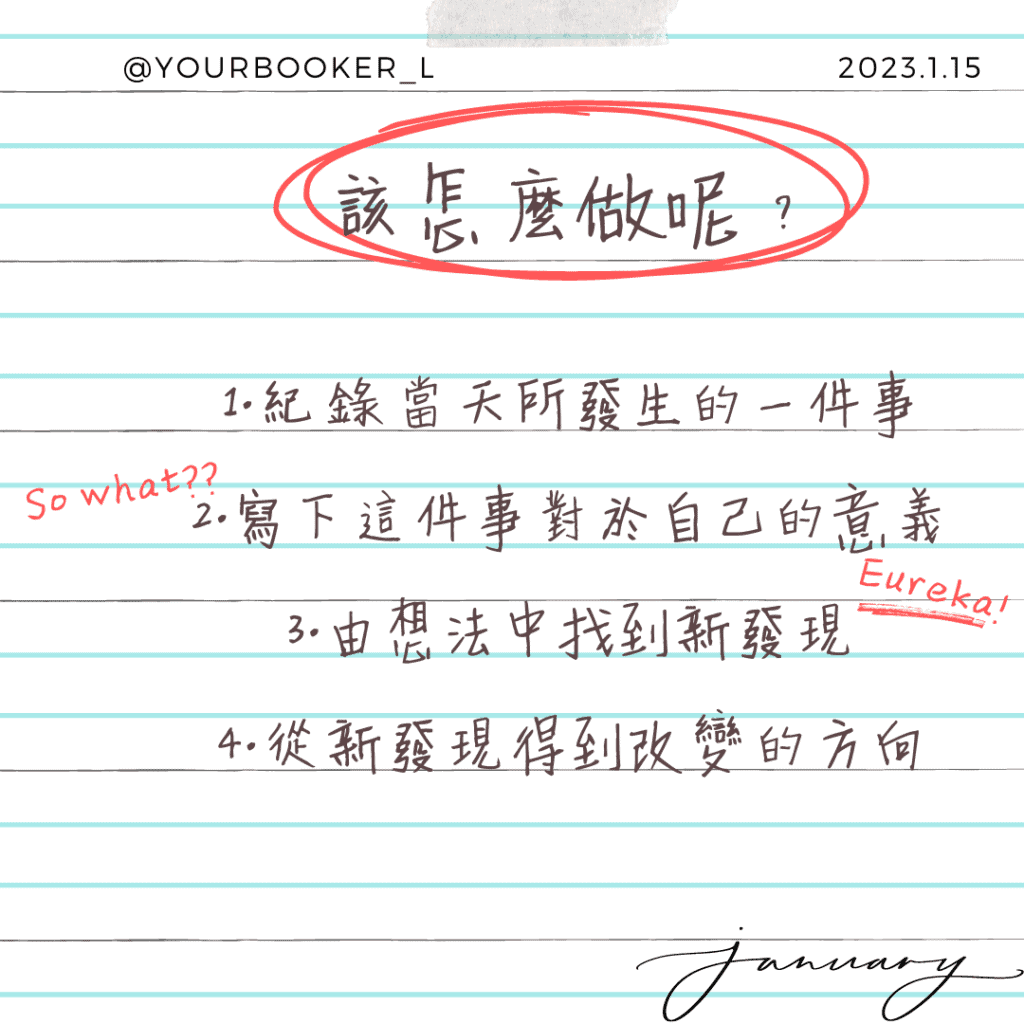 @YOURBOOKER_L 2023.1.15
該怎麼做呢?
1.紀錄當天所發生的一件事
So what??
2.寫下這件事對於自己的意義
Eureka!
3.由想法中找到新發現
4.從新發現得到改變的方向
january